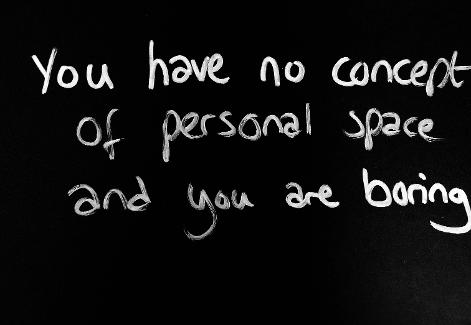 You have no concept
of personal space
and you are boring